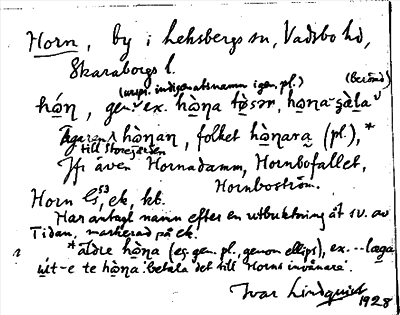 Horn, by i Leksbergs sn, Vadsbo hd,
Skaraborgs l.
(urspr. indigenatsnamn i gen. pl.) (Berönd)
hó̱n, gen. ex. hò̱na tø̱sər, hò̱na-gà̱la
Ägaren hò̱nan, folket hò̱nara (pl.),*
till Storegården
Jfr även Hornadamm, Hornbofallet,
Hornboström.
Horn G⁵³, ek, kt.
Har antagl namn efter en utbuktning åt sv. av
Tidan, markerad på ek.
*äldre hò̱na (eg. gen. pl., genom ellips), ex. -- læga
út-e te hò̱na 'betala det till Horns invånare'.
Ivar Lindquist
1928